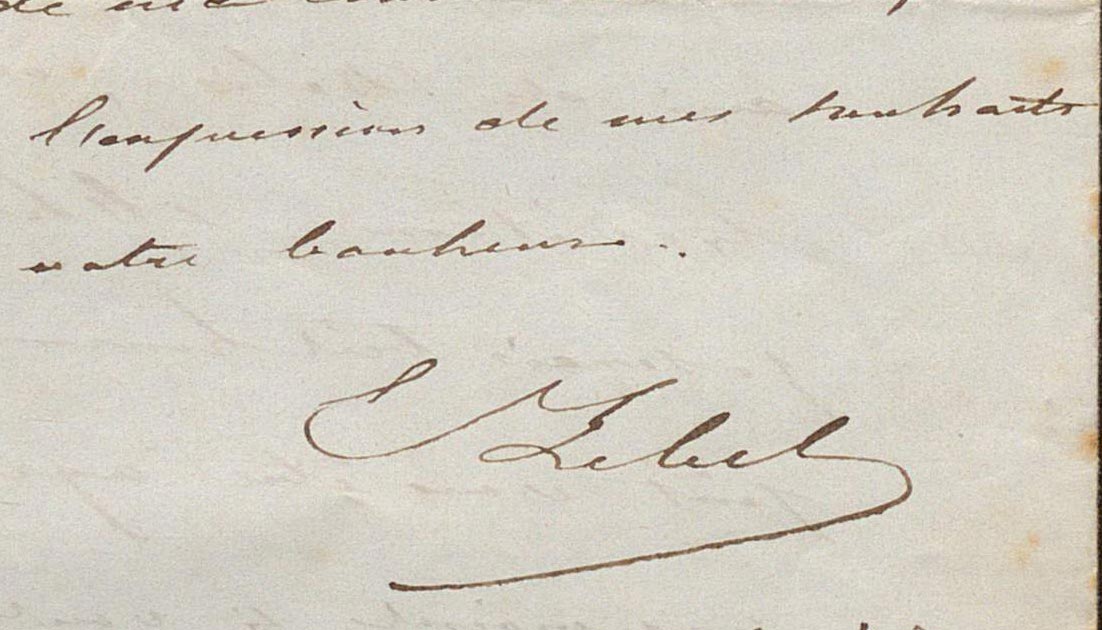 de ma
l'expression de mes souhaits
votre bonheur.
E Lebel